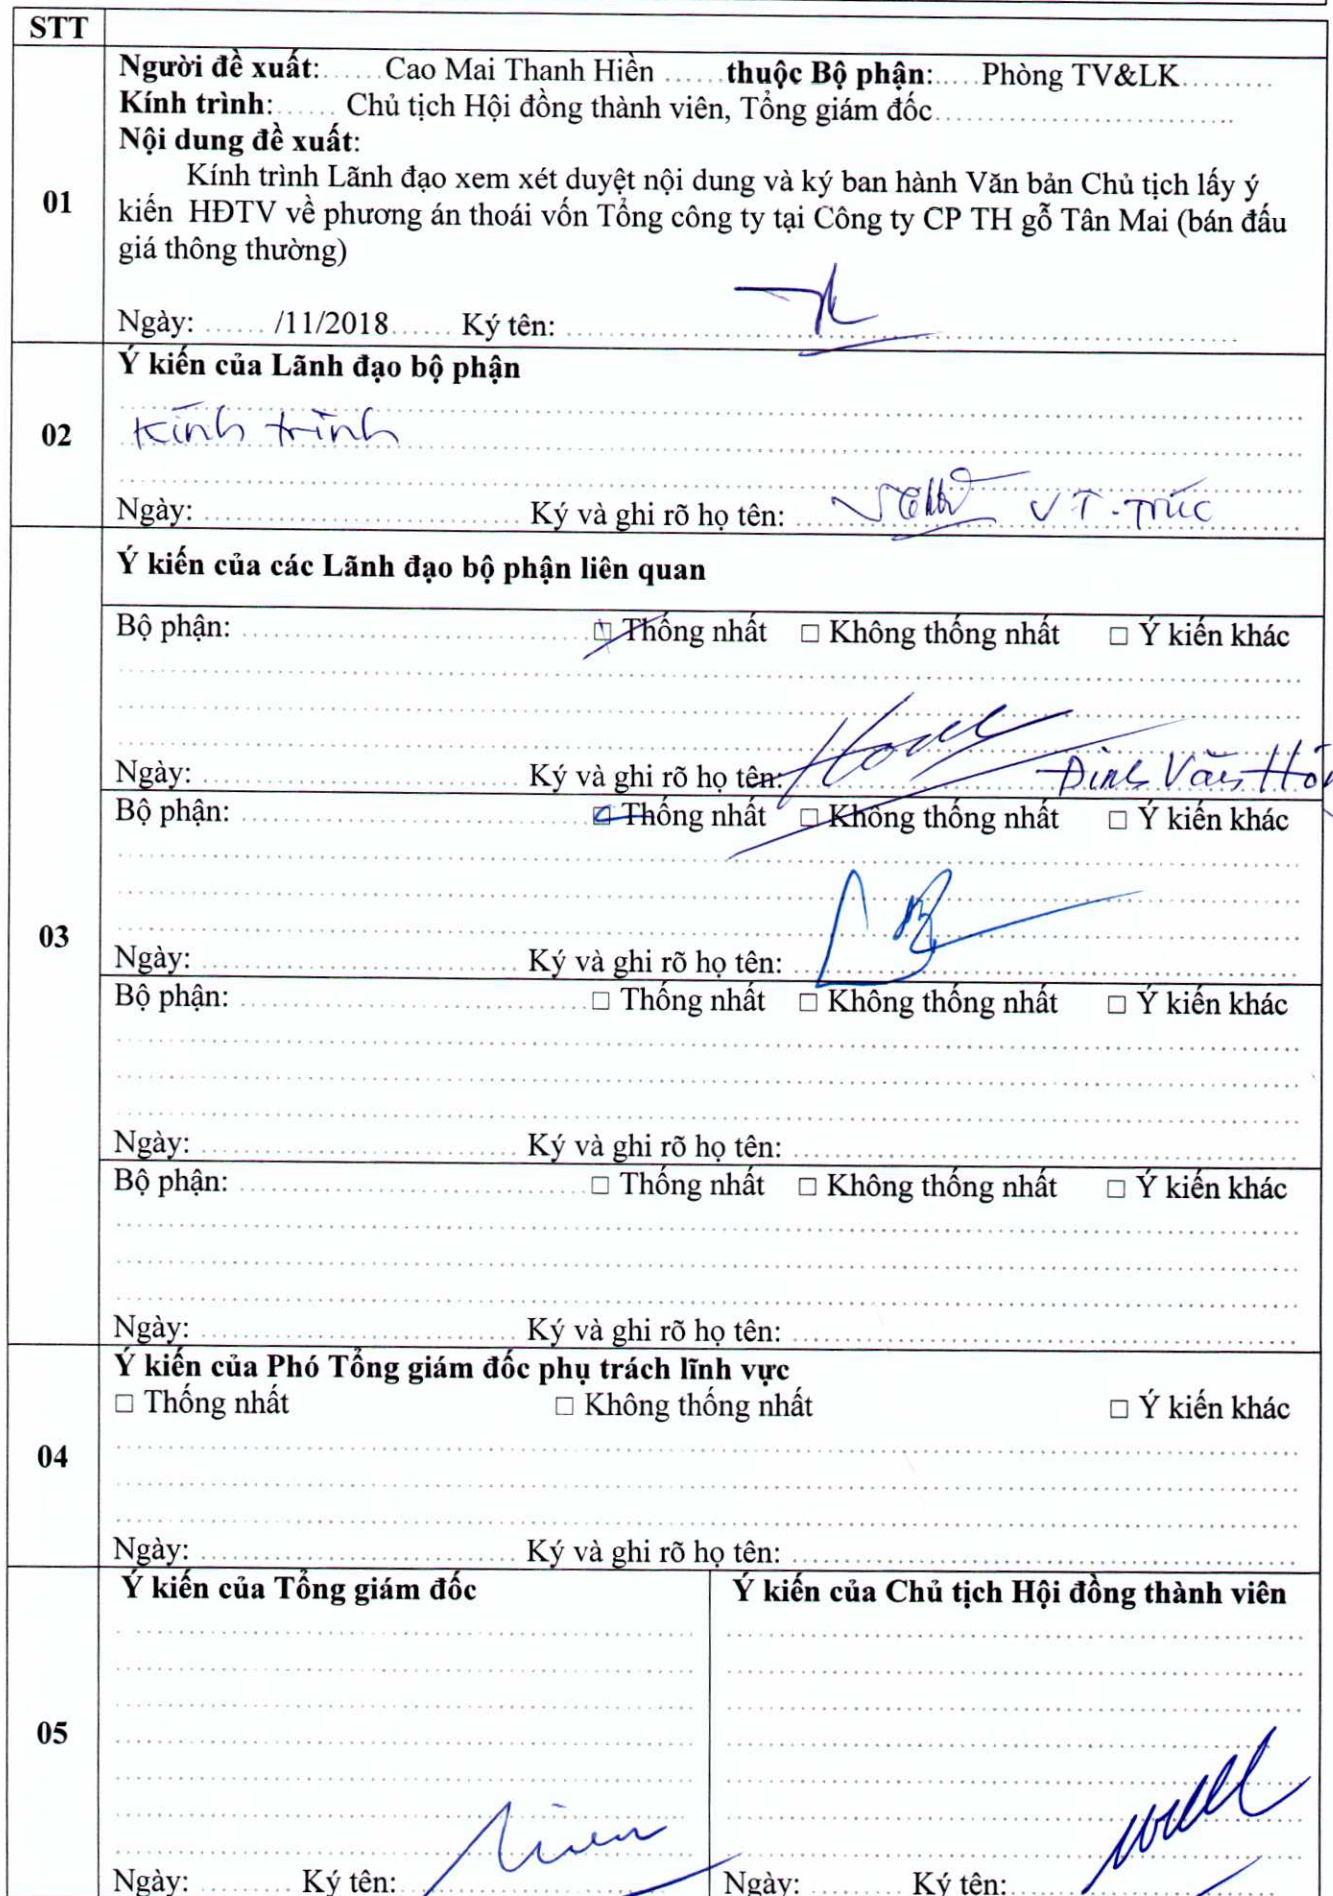 STT
01
Người đề xuất:......Cao Mai Thanh Hiền ......thuộc Bộ phận:.....Phòng TV&LK.........
Kính trình:...... Chủ tịch Hội đồng thành viên, Tổng giám đốc..............................
Nội dung đề xuất:
Kính trình Lãnh đạo xem xét duyệt nội dung và ký ban hành Văn bản Chủ tịch lấy ý
kiến HĐTV về phương án thoái vốn Tổng công ty tại Công ty CP TH gỗ Tân Mai (bán đấu
giá thông thường)
Ngày: ...... /11/2018...... Ký tên:
02
Ý kiến của Lãnh đạo bộ phận
Kính trình
Ngày: Ký và ghi rõ họ tên: VT.Trúc
03
Ý kiến của các Lãnh đạo bộ phận liên quan
Bộ phận: □ Thống nhất □ Không thống nhất □ Ý kiến khác
Ngày: Ký và ghi rõ họ tên: Đinh Văn
Bộ phận: □ Thống nhất □ Không thống nhất □ Ý kiến khác
Ngày: Ký và ghi rõ họ tên:
Bộ phận: □ Thống nhất □ Không thống nhất □ Ý kiến khác
Ngày: Ký và ghi rõ họ tên:
Bộ phận: □ Thống nhất □ Không thống nhất □ Ý kiến khác
Ngày: Ký và ghi rõ họ tên:
04
Ý kiến của Phó Tổng giám đốc phụ trách lĩnh vực
□ Thống nhất □ Không thống nhất □ Ý kiến khác
Ngày: Ký và ghi rõ họ tên:
05
Ý kiến của Tổng giám đốc
Ngày: Ký tên:
Ý kiến của Chủ tịch Hội đồng thành viên
Ngày: Ký tên: